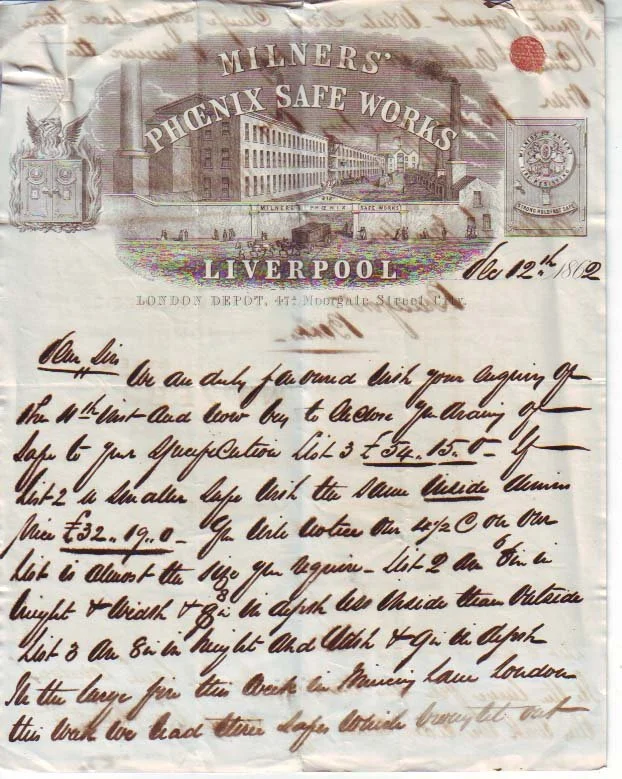 MILNERS'
PHŒNIX SAFE WORKS
MILNERS PHŒNIX SAFE WORKS
LIVERPOOL
STRONG HOLDFAST SAFE
Dec 12th 1862
LONDON DEPOT, 47A Moorgate Street City.
Dear Sir
We are duly favoured with your enquiry of
the 11th inst and now beg to enclose you drawing of
Safe to your Specification List 3 £34.. 15.. 0 - If
List 2 a smaller safe with the same inside dimens
price £32.. 19.. 0 - You will notice Our 4½ C on our
List is almost the size you require - List 2 are 6 in in
height & width & 8 in in depth less inside than outside
List 3 are 8 in in height and width & 9 in in depth
In the large fire this week in Mincing Lane London
this week we had three Safes which brought out